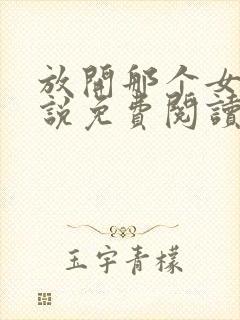 放開那个女
說免費閱讀
玉宇青檬